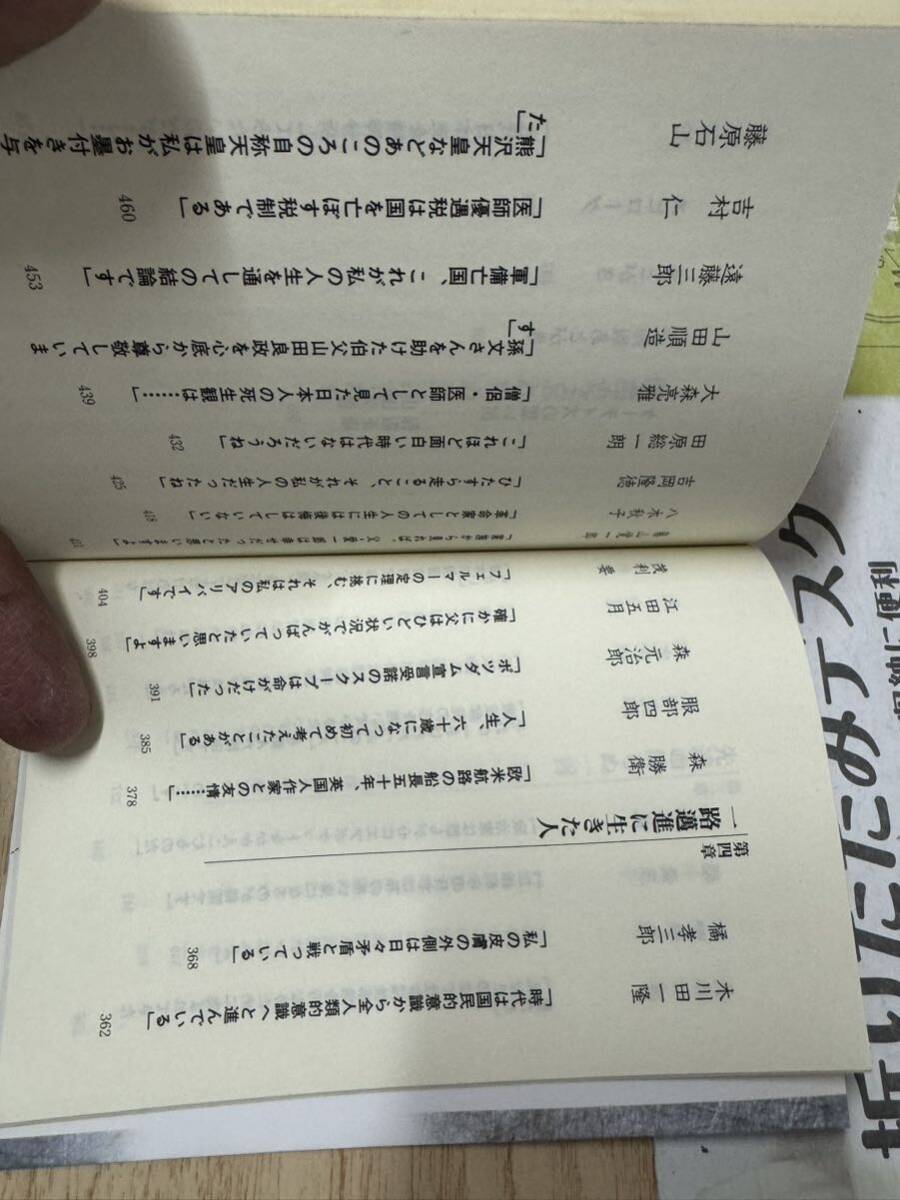 木川田一隆
「時代は国民的意識から全人類的意識へと進んでいる」 362
橘孝三郎
「私の皮膚の外側は日々矛盾と戦っている」 368
第四章
一路邁進に生きた人
森勝衛
「欧米航路の船長五十年、英国人作家との友情……」 378
服部四郎
「人生、六十歳になって初めて考えたことがある」 385
森元治郎
「ポツダム宣言受諾のスクープは命がけだった」 391
江田五月
「確かに父はひどい状況でがんばっていたと思いますよ」 398
「フェルマーの定理に挑む、それは私のアリバイです」 404
411
八木秋子
「革命家としての人生には後悔はしていない」 418
吉岡隆徳
「ひたすら走ること、それが私の人生だったね」 425
田原総一朗
「これほど面白い時代はないだろうね」 432
大森亮雅
「僧侶・医師として見た日本人の死生観は……」 439
山田順造
「孫文さんを助けた伯父山田良政を心底から尊敬していま
す」
遠藤三郎
「軍備亡国、これが私の人生を通しての結論です」 453
吉村仁
「医師優遇税は国を亡ぼす税制である」 460
藤原石山
「熊沢天皇などあのころの自称天皇は私がお墨付きを与
た」
折りたたみデスク